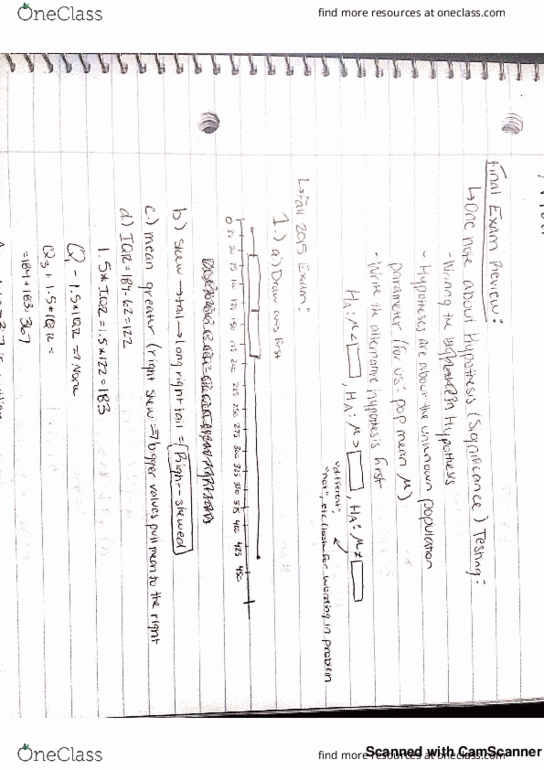 OneClass
find more resources at oneclass.com
Final Exam Preview:
↳One note about Hypothesis (Significance) Testing:
the Hypothesis
- Hypotheses are about the unknown population
parameter (for us: pop mean μ)
- Write the alternative hypothesis first
HA: μ< , HA: μ> , HA: μ≠
"different"
"not", etc for wording in problem
↳Fall 2015 Exam:
1.) a) Draw first
0 25 50 75 100 125 150 175 200 225 250 275 300 325 350 375 400 425 450
b) skew → tail → long right tail = Right-skewed
c) mean greater (right skew ⇒ bigger values pull mean to the right
d) IQR = 184-62=122
1.5*IQR = 1.5*122=183
Q1 - 1.5*IQR ⇒ None
Q3 + 1.5*IQR =
=184+183=367
OneClass
find more resources at oneclass.com
Scanned with CamScanner